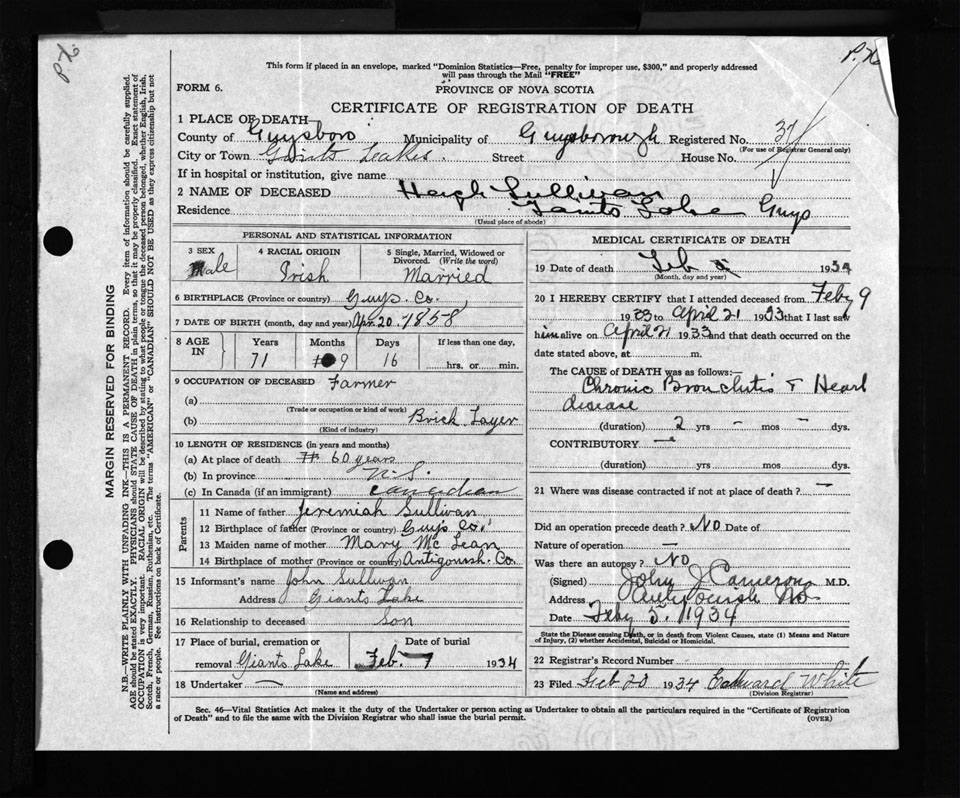 P.N.
P.N.
This form if placed in an envelope, marked "Dominion Statistics—Free, penalty for improper use, $300," and properly addressed
will pass through the Mail "FREE"
FORM 6.
PROVINCE OF NOVA SCOTIA
CERTIFICATE OF REGISTRATION OF DEATH
MARGIN RESERVED FOR BINDING
N.B.—WRITE PLAINLY WITH UNFADING INK—THIS IS A PERMANENT RECORD. Every item of information should be carefully supplied.
AGE should be stated EXACTLY. PHYSICIANS should STATE CAUSE OF DEATH in plain terms, so that it may be properly classified. Exact statement of
OCCUPATION is very important. RACIAL ORIGIN will be described by stating to what people or tongue deceased person belonged, whether English, Irish,
Scotch, French, German, Russian, Ruthenian, etc. The terms "AMERICAN" or "CANADIAN" SHOULD NOT BE USED as they express citizenship but not
a race or people. See instructions on back of Certificate.
1 PLACE OF DEATH
County of Guysboro Municipality of Guysborough Registered No. 37
(For use of Registrar General only)
City or Town Giants Lakes. Street House No.
If in hospital or institution, give name
2 NAME OF DECEASED Hugh Sullivan
Residence Giants Lake Guys
(Usual place of abode)
PERSONAL AND STATISTICAL INFORMATION
3 SEX 4 RACIAL ORIGIN 5 Single, Married, Widowed or
Divorced. (Write the word)
Male Irish Married
6 BIRTHPLACE (Province or country) Guys. Co.
7 DATE OF BIRTH (month, day and year) Apr. 20. 1858
8 AGE
IN
Years Months Days If less than one day,
71 9 16 hrs. or min.
9 OCCUPATION OF DECEASED Farmer
(a)
(Trade or occupation or kind of work)
(b) Brick Layer
(Kind of industry)
10 LENGTH OF RESIDENCE (in years and months)
(a) At place of death 60 years
(b) In province N.S.
(c) In Canada (if an immigrant) Canadian
Parents
11 Name of father Jeremiah Sullivan
12 Birthplace of father (Province or country) Guys Co.
13 Maiden name of mother Mary McLean
14 Birthplace of mother (Province or country) Antigonish. Co.
15 Informant's name John Sullivan
Address Giants Lake
16 Relationship to deceased Son
17 Place of burial, cremation or Date of burial
removal Giants Lake Feb 7 1934
18 Undertaker —
(Name and address)
MEDICAL CERTIFICATE OF DEATH
19 Date of death Feb 1934
(Month, day and year)
20 I HEREBY CERTIFY that I attended deceased from Feby 9
1933 to April 21 1933 that I last saw
him alive on April 21 1933 and that death occurred on the
date stated above, at m.
The CAUSE of DEATH was as follows:—
Chronic Bronchitis & Heart
disease
(duration) 2 yrs - mos - dys.
CONTRIBUTORY —
(duration) yrs mos dys.
21 Where was disease contracted if not at place of death? —
Did an operation precede death? No Date of
Nature of operation —
Was there an autopsy? No
(Signed) John J Cameron M.D.
Address Antigonish N.S.
Date Feby 5. 1934
State the Disease causing Death, or in death from Violent Causes, state (1) Means and Nature
of Injury, (2) whether Accidental, Suicidal or Homicidal.
22 Registrar's Record Number
23 Filed Feb 20 1934 Edward White
(Division Registrar)
Sec. 46—Vital Statistics Act makes it the duty of the Undertaker or person acting as Undertaker to obtain all the particulars required in the "Certificate of Registration
of Death" and to file the same with the Division Registrar who shall issue the burial permit.
(OVER)